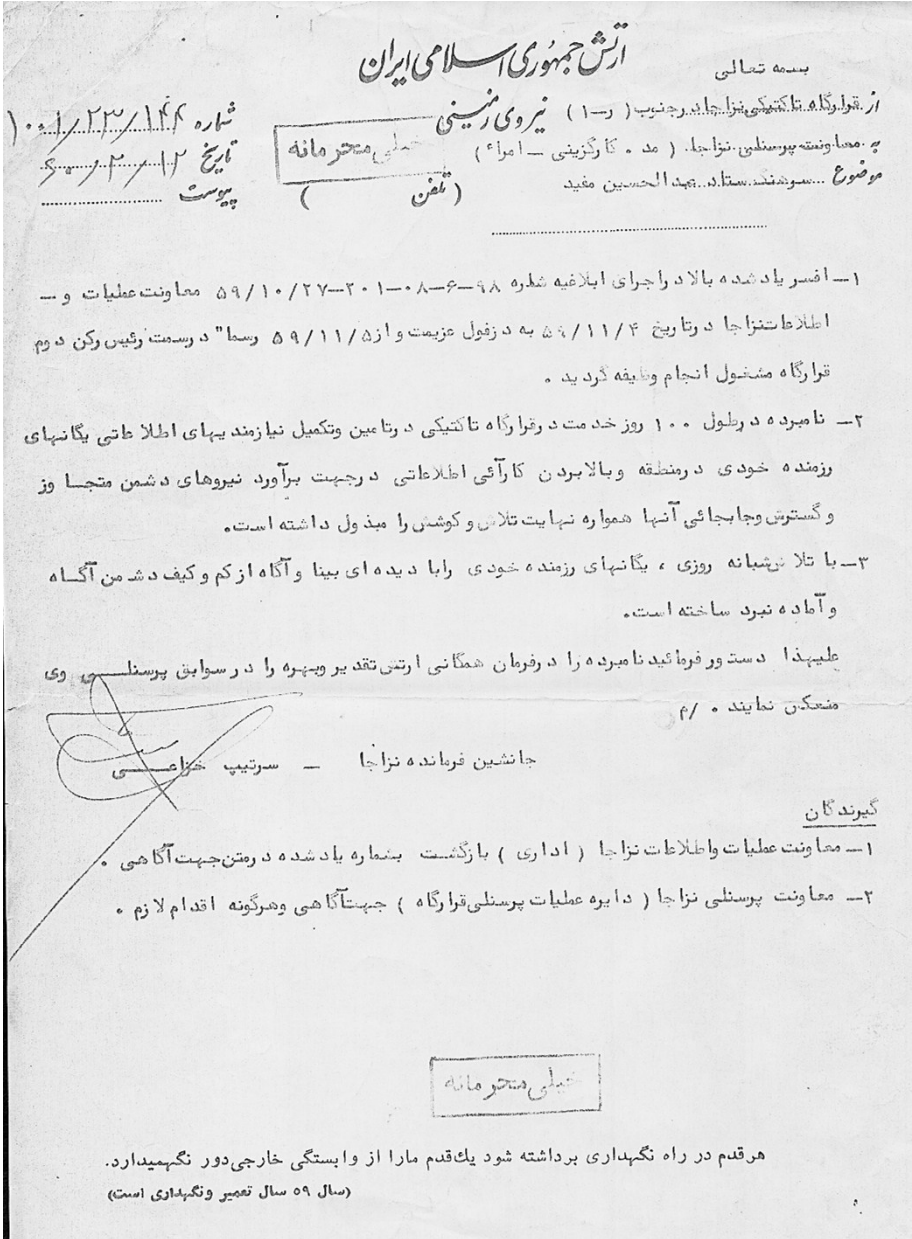 بسمه تعالی
ارتش جمهوری اسلامی ایران
نیروی زمینی
از قرارگاه تاکتیکی نزاجا در جنوب ( ر-۱ )
به معاونت پرسنلی نزاجا. ( مد ۰ کارگزینی – امراء )
موضوع سرهنگ ستاد عبدالحسین مفید
شماره ۱۰۰۱/۲۳/۱۴۴
تاریخ ۶۰/۲/۱۲
پیوست
خیلی محرمانه
( تلفن )
۱– افسر یاد شده بالا در اجرای ابلاغیه شماره ۹۸–۶–۰۸–۲۰۱–۵۹/۱۰/۲۷ معاونت عملیات و –
اطلاعات نزاجا در تاریخ ۵۹/۱۱/۴ به دزفول عزیمت و از ۵۹/۱۱/۵ رسما" در سمت رئیس رکن دوم
قرارگاه مشغول انجام وظیفه گردید ۰
۲– نامبرده در طول ۱۰۰ روز خدمت در قرارگاه تاکتیکی در تامین وتکمیل نیازمندیهای اطلاعاتی یگانهای
رزمنده خودی در منطقه وبالابردن کارآئی اطلاعاتی در جهت برآورد نیروهای دشمن متجاوز
و گسترش وجابجائی آنها همواره نهایت تلاش و کوشش را مبذول داشته است.
۳– با تلاش شبانه روزی ، یگانهای رزمنده خودی رابا دیده ای بینا و آگاه از کم و کیف دشمن آگاه
و آماده نبرد ساخته است.
علیهذا دستور فرمائید نامبرده را در فرمان همگانی ارتش تقدیر وبهره را در سوابق پرسنلی وی
منعکس نمایند ۰ /م
جانشین فرمانده نزاجا – سرتیپ خزاعی
گیرندگان
۱– معاونت عملیات واطلاعات نزاجا ( اداری ) بازگشت بشماره یاد شده در متن جهت آگاهی ۰
۲– معاونت پرسنلی نزاجا ( دایره عملیات پرسنلی قرارگاه ) جهت آگاهی وهرگونه اقدام لازم ۰
خیلی محرمانه
هرقدم در راه نگهداری برداشته شود یك قدم مارا از وابستگی خارجی دور نگهمیدارد.
(سال ۵۹ سال تعمیر ونگهداری است)